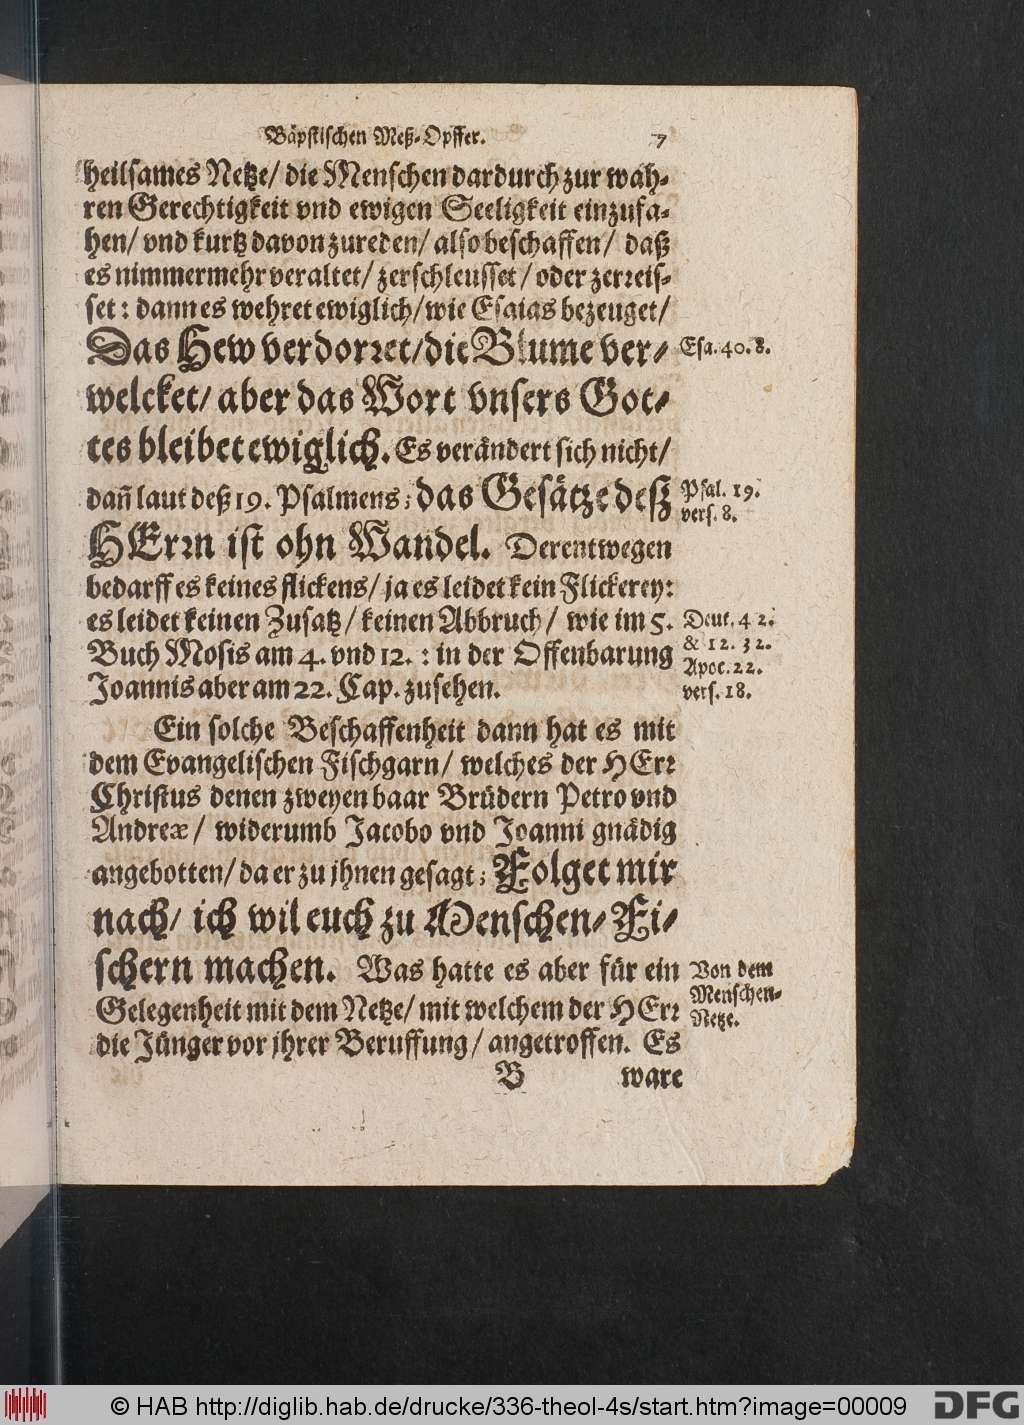 Bäpstischen Meß-Opffer. 7
heilsames Netze/ die Menschen dardurch zur wah-
ren Gerechtigkeit vnd ewigen Seeligkeit einzufa-
hen/ vnd kurtz davon zureden/ also beschaffen/ daß
es nimmermehr veraltet/ zerschleusset/ oder zerreis-
set: dann es wehret ewiglich/ wie Esaias bezeuget/
Das Hew verdorret/ die Blume ver- Esa. 40. 8.
welcket/ aber das Wort vnsers Got-
tes bleibet ewiglich. Es verändert sich nicht/
dañ laut deß 19. Psalmens; das Gesätze deß Psal. 19.
vers. 8.
HErrn ist ohn Wandel. Derentwegen
bedarff es keines flickens/ ja es leidet kein Flickerey:
es leidet keinen Zusatz/ keinen Abbruch/ wie im 5. Deut. 4 2.
Buch Mosis am 4. vnd 12. : in der Offenbarung & 12. 32.
Apoc. 22.
Joannis aber am 22. Cap. zusehen. vers. 18.
Ein solche Beschaffenheit dann hat es mit
dem Evangelischen Fischgarn/ welches der HErr
Christus denen zweyen baar Brüdern Petro vnd
Andreæ/ widerumb Jacobo vnd Joanni gnädig
angebotten/ da er zu jhnen gesagt; Folget mir
nach/ ich wil euch zu Menschen-Fi-
schern machen. Was hatte es aber für ein Von dem
Menschen-
Gelegenheit mit dem Netze/ mit welchem der HErr Netze.
die Jünger vor jhrer Beruffung/ angetroffen. Es
B ware
© HAB http://diglib.hab.de/drucke/336-theol-4s/start.htm?image=00009
DFG